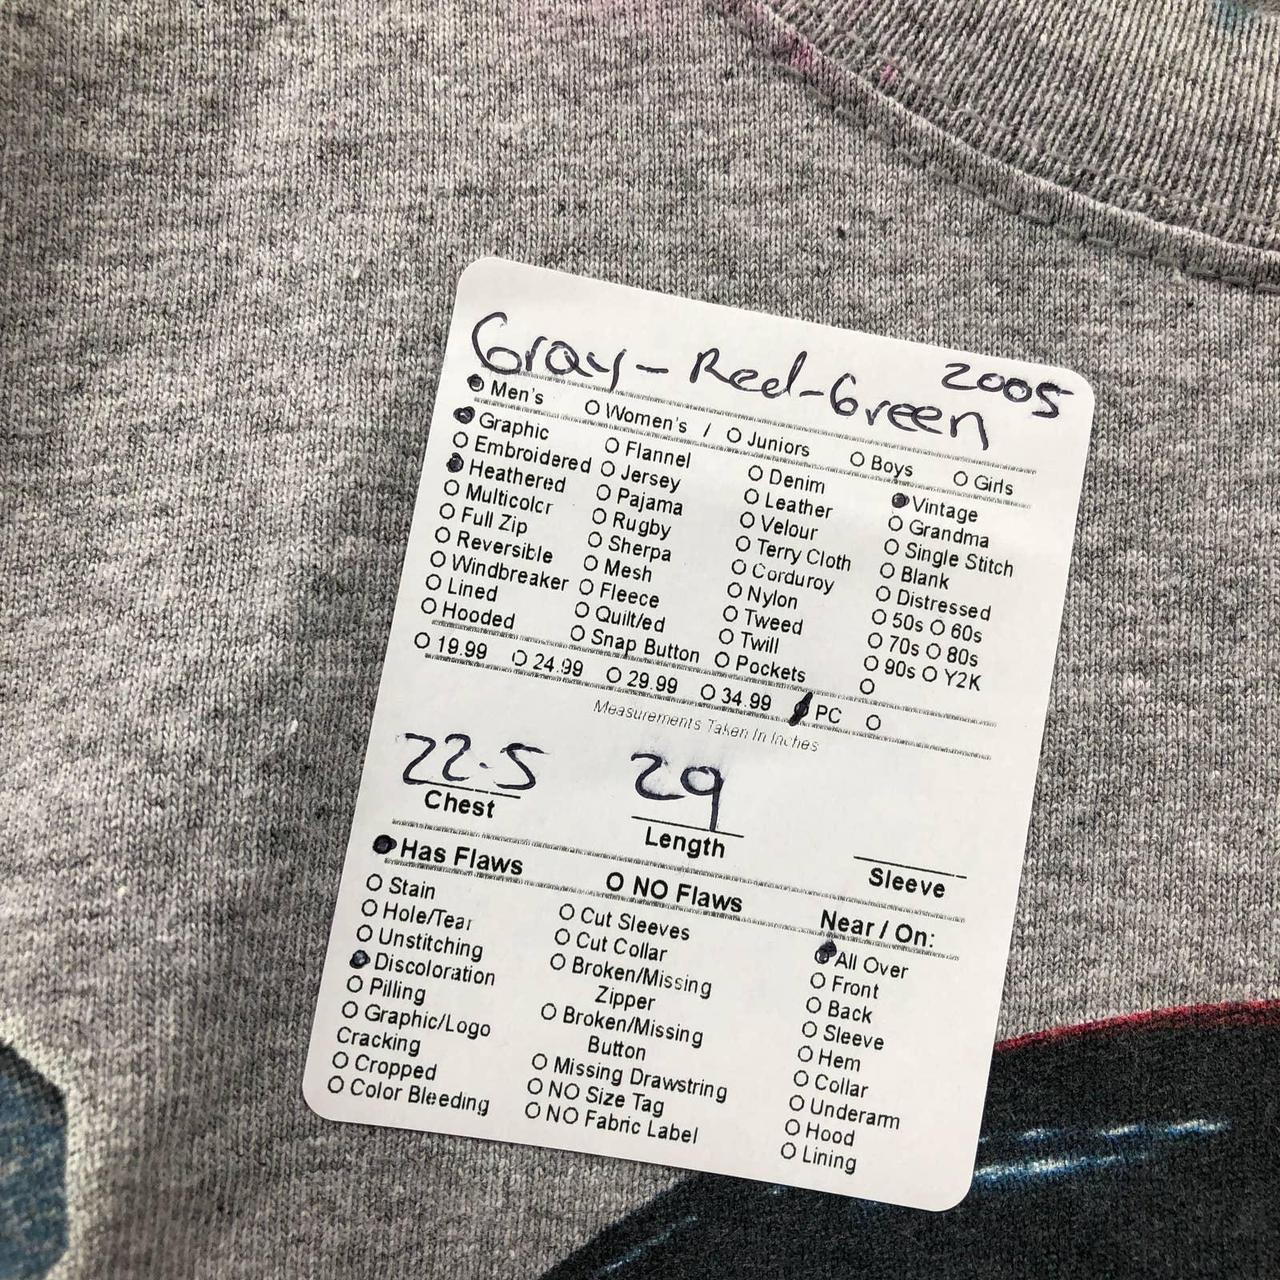 Gray-Red-Green 2005
Men's Women's / Juniors Boys Girls
Graphic Flannel Denim Vintage
Embroidered Jersey Leather Grandma
Heathered Pajama Velour Single Stitch
Multicolor Rugby Terry Cloth Blank
Full Zip Sherpa Corduroy Distressed
Reversible Mesh Nylon 50s 60s
Windbreaker Fleece Tweed 70s 80s
Lined Quilt/ed Twill 90s Y2K
Hooded Snap Button Pockets
19.99 24.99 29.99 34.99 PC
Measurements Taken In Inches
22.5 29
Chest Length Sleeve
Has Flaws NO Flaws Near / On:
Stain Cut Sleeves All Over
Hole/Tear Cut Collar Front
Unstitching Broken/Missing Back
Discoloration Zipper Sleeve
Pilling Broken/Missing Hem
Graphic/Logo Button Collar
Cracking Missing Drawstring Underarm
Cropped NO Size Tag Hood
Color Bleeding NO Fabric Label Lining